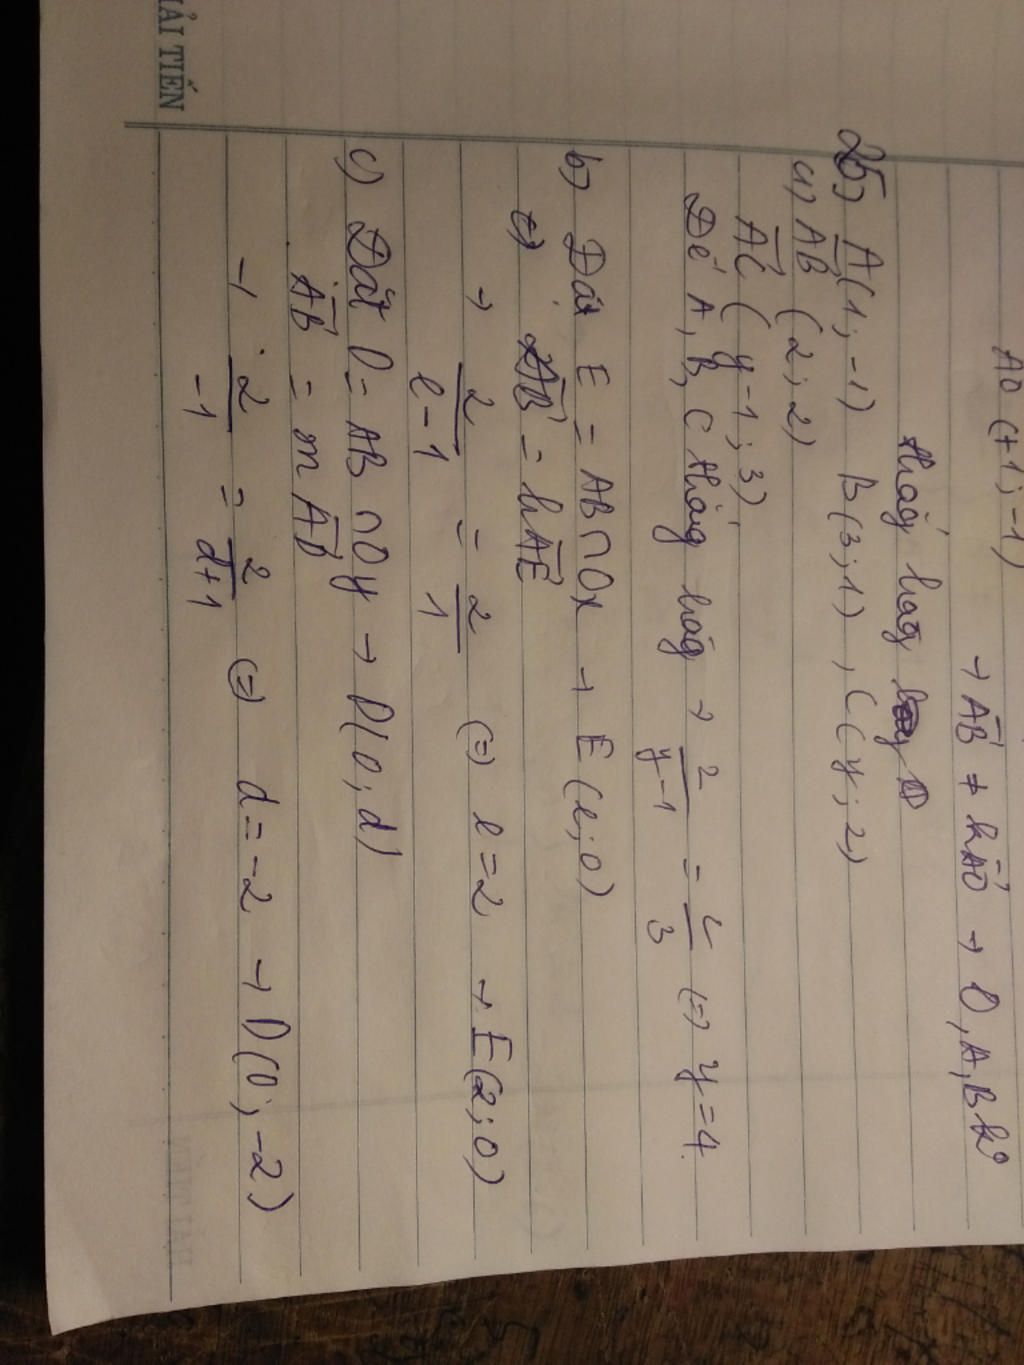 AO (+1; -1)
→ AB ≠ kAO → O, A, B k°
thẳg hàg
25) A(1; -1) B(3; 1), C(y; 2)
a) AB (2; 2)
AC (y-1; 3)
Để A, B, C thẳng hàg → 2/(y-1) = 2/3 (=) y = 4.
b) Đặt E = AB ∩ Ox → E(e; 0)
AB = kAE
→ 2/(e-1) = 2/1 (=) e = 2 → E(2; 0)
c) Đặt D = AB ∩ Oy → D(0; d)
AB = m AD
→ 2/-1 = 2/(d+1) (=) d = -2 → D(0; -2)
ẢI TIẾN